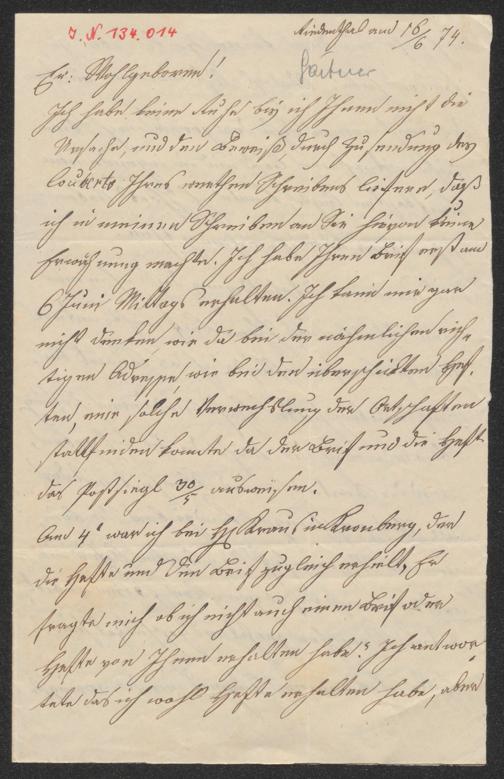 J. N. 134.014
Riedenthal am 16/6 74.
Gärtner
Er: Wohlgeboren!
Ich habe keine Ruhe bis ich Ihnen nicht die
Ursache, und den Beweiß durch Zusendung des
Couverts Ihres werthen Schreibens liefere, daß
ich in meinen Schreiben an Sie hievon keine
Erwähnung machte. Ich habe Ihren Brief erst am
6 Juni Mittags erhalten. Ich kann mir gar
nicht denken wie da bei der nähmlichen rich-
tigen Adresse wie bei den überschickten Hef-
ten, eine solche Verwechslung der Ortschaften
stattfinden konnte da der Brief und die Hefte
das Postsiegl 30/5 ausweisen.
Am 4t war ich bei H Kraus in Kronberg, der
die Hefte und den Brief zugleich erhielt, Er
fragte mich ob ich nicht auch einen Brief oder
Hefte von Ihnen erhalten habe? Ich antwor-
tete das ich wohl Hefte erhalten habe, aber